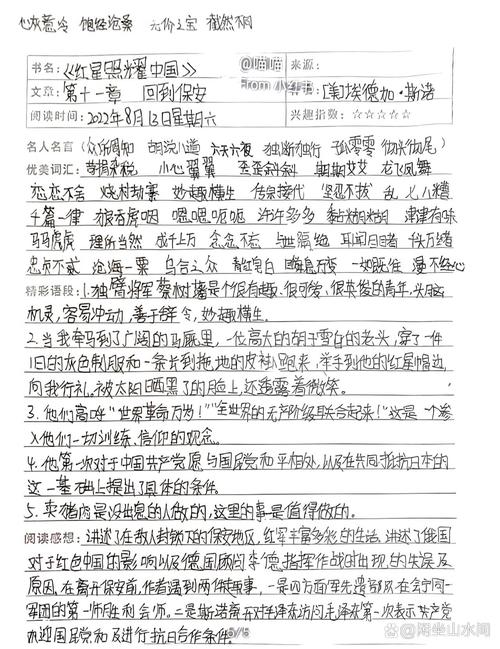 心灰意冷 饱经沧桑 无价之宝 截然不同
书名:《红星照耀中国》 来源:
@喵喵
From 小红书
文章: 第十一章 回到保安 [美]埃德加·斯诺
阅读时间: 2022年8月13日星期六 兴趣指数: ☆☆☆☆☆
名人名言 (众所周知 胡说八道 六天六夜 独断独行 孤零零 彻头彻尾)
优美词汇: 苛捐杂税 小心翼翼 歪歪斜斜 期期艾艾 龙飞凤舞
恋恋不舍 烧村劫寨 妙趣横生 传宗接代 坚忍不拔 乱七八糟
千篇一律 狼吞虎咽 嗯嗯呃呃 许许多多 津津有味
马马虎虎 理所当然 成千上万 念念不忘 与世隔绝 耳闻目睹 千头万绪
忠贞不贰 沧海一粟 乌合之众 青红皂白 瞬息万变 一如既往 漫不经心
精彩语段: 1.独臂将军蔡树藩是个很有趣、很可爱、很英俊的青年,头脑
机灵,容易冲动,善于辞令,妙趣横生。
2.当我牵马到了广阔的马厩里,一位高大的胡子雪白的老头,穿了一件
旧的灰色制服和一条片到拖地的皮袄跑来,举手到他的红星帽边
向我行礼。被太阳晒黑了的脸上,还透露着微笑。
3.他们高呼“世界革命万岁!”“全世界的无产阶级联合起来!”这是一个渗
入他们一切训练、信仰的观念。
4.他第一次对于中国共产党愿与国民党和平相处,以及在共同抵抗日本的
这一基础上提出了具体的条件。
5.李猪肉是没出息的人做的,这里的事是值得做的。
阅读感想: 讲述了在敌人封锁下的保安地区,红军丰富多彩的生活,讲述了俄国
对于红色中国的影响以及德国顾问李德,指挥作战时出现的失误及
原因,在离开保安前,作者遇到两件趣事,一是四方面军先遣部队在会宁同一
军团的第一师胜利会师。二是斯诺离开对毛泽东访问毛泽东第一次表示共产党
欢迎国民党和及进行抗日合作条件。
5/5
@闲坐山水间